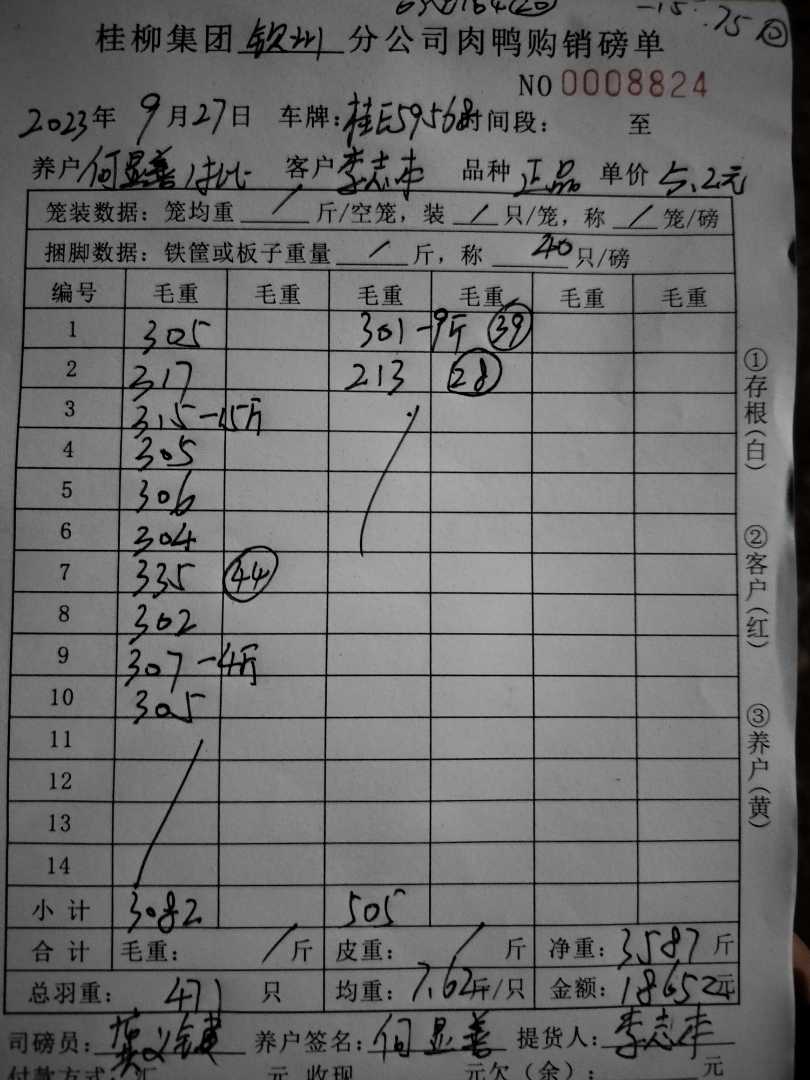 -15 .75
桂柳集团 钦州 分公司肉鸭购销磅单
NO 0008824
2023年 9月27日 车牌:桂E59568时间段: 至
养户 何显善 客户 李志本 品种 正品 单价 5.2元
笼装数据:笼均重 / 斤/空笼,装 / 只/笼,称 / 笼/磅
捆脚数据:铁筐或板子重量 / 斤,称 40 只/磅
编号 毛重 毛重 毛重 毛重 毛重 毛重
1 305 301-9斤 39
2 317 213 28
3 315-15斤
4 305
5 306
6 304
7 335 44
8 302
9 307-4斤
10 305
11
12
13
14
小计 3082 505
合计 毛重: / 斤 皮重: / 斤 净重: 3587 斤
总羽重: 471 只 均重: 7.62斤/只 金额: 18652元
司磅员: 养户签名: 何显善 提货人: 李志本
付款方式:汇 元 收现 元欠(余): 元
①存根(白)
②客户(红)
③养户(黄)